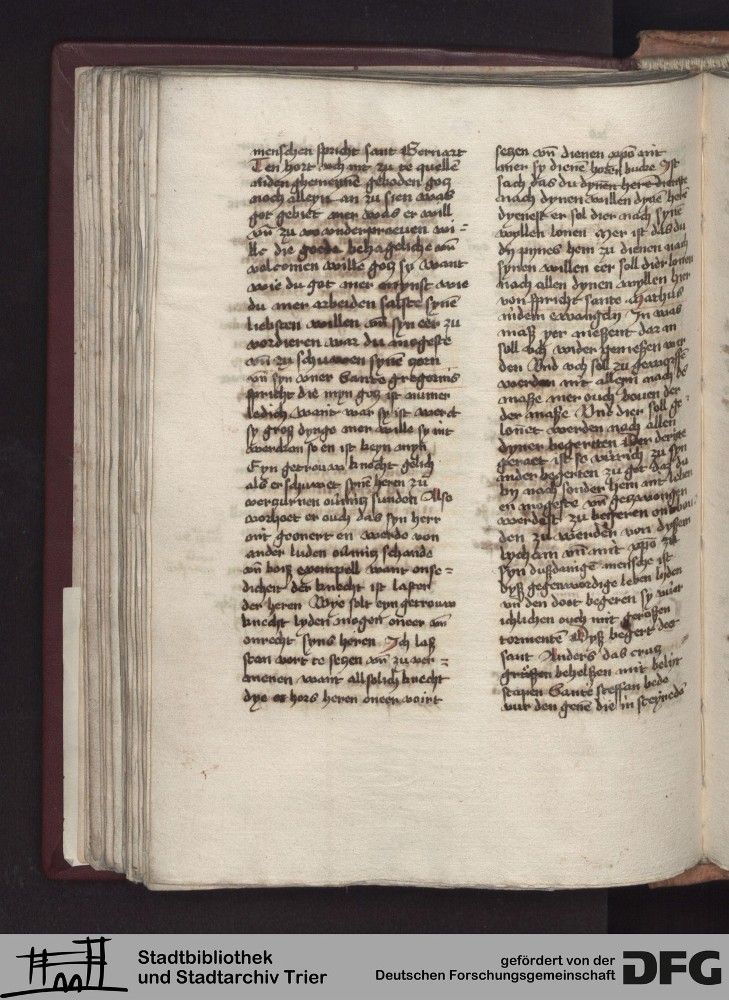 menschen spricht sant Bernart
Ten hort uch nit zu te quellē
niden ghemeynē geboden gotz
noch alleyn an zu sien was
got gebiet mer was er will
vn̄ zu vnderproeuen wi-
lle die goede behageliche vn̄
volcomen wille gotz sy want
wie du got mer mynst wie
du mer arbeiden salste synē
liebsten willen vn̄ syn eer zu
vordieren war du mogeste
vn̄ zu schuwen synē zorn
vn̄ syn vner Sante gregorius
spricht die myn gotz ist nūmer
ledich want war sy ist werct
sy groß dynge mer wille sy nit
wercken so en ist keyn myn
Eyn getrouw knecht gelich
als er schuwet synē heren zu
verzurnen sunden Also
worhoet er ouch das syn herr
nit geonert en werde von
ander luden schande
vn̄ boiß exempell want onse-
dicheit des knecht ist laster
der heren Wye solt eyn getrouw
knecht lyden mogen oneer vn̄
onrecht syns heren Ich laß
stan vort te setzen vn̄ zu ver-
menen want all solich knecht
dye es hors heren oneer voirt
setzen vn̄ dienen xpo nit
mer sy dienē boeser buche Ist
sach das du dynen here dienste
nach dynen willen dyne here
dyenest er sol dier nach synē
wyllen lonen Mer ist das du
dy pynes hem zu dienen nach
synen willen eer soll dier lonen
nach allen dynen wyllen her
von spricht sante Matheus
nidem ewangely In was
maß yer messent dar an
soll uch wider gemessen wer
den Vnd uch soll zu geworffē
werden nit alleyn nach de
maße mer ouch bouen der
der maße Vnd dier soll ge-
lonet werden nach allen
dyner begerten
geraet ist so
ander begerten zu got das du
by nach sonder hem nit leben
en mogeste vn̄ getzwongen
werdest zu begeren
den zu werden von dysem
lycham vn̄ mit xpo zu
syn dußdanige mensche ist
dyß gegenwordige leben lyden
vn̄ den doot begeren sy
ichlichen ouch mit großen
tormentē Dyß begert des
sant Anders das cruz
grüssen behelßen mit belijt
stapen Sante steffan bede
vur den genē die in steynedē
Stadtbibliothek
und Stadtarchiv Trier
gefördert von der
Deutschen Forschungsgemeinschaft
DFG